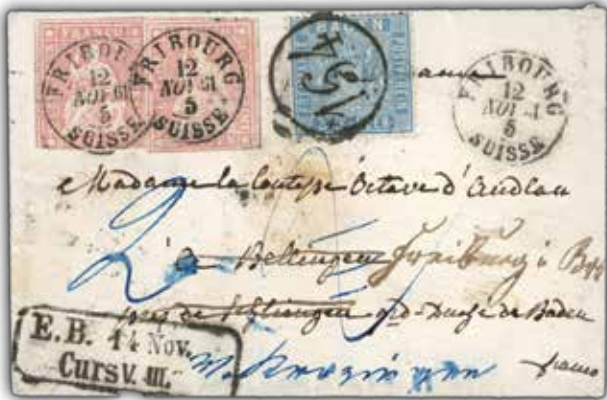 FRIBOURG
12
NOV 61
5
SUISSE
FRIBOURG
12
NOV 61
5
SUISSE
FRIBOURG
12
NOV 61
5
SUISSE
Madame la Comtesse Octave d'Andlau
à Bellingen Freiburg i
près de Schliengen gd-Duché de Baden
franco
E. B. 14 Nov.
Curs V. III.